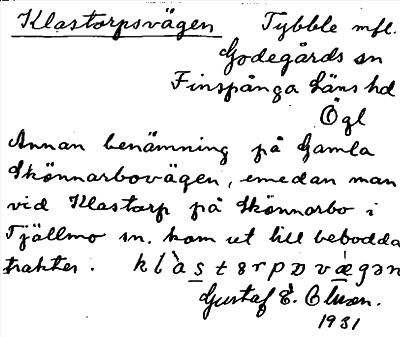 Klastorpsvägen Tybble mfl.
Godegårds sn
Finspånga läns hd
Ögl
Annan benämning på Gamla
Skönnarbovägen, emedan man
vid Klastorp på Skönnarbo i
Tjällmo sn. kom ut till bebodda
trakter.
Gustaf E. Olsson.
1931